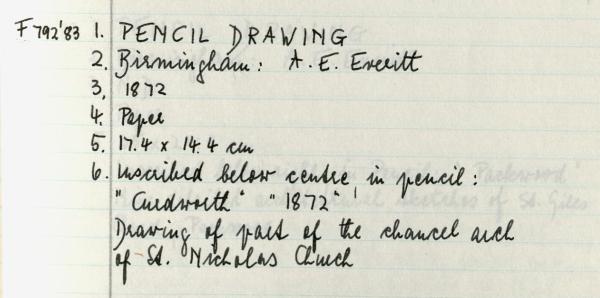 F792'83 1. PENCIL DRAWING
2. Birmingham: A. E. Everitt
3, 1872
4. Paper
5. 17.4 x 14.4 cm
6. Inscribed below centre in pencil:
"Curdworth" "1872"
Drawing of part of the chancel arch
of St. Nicholas Church